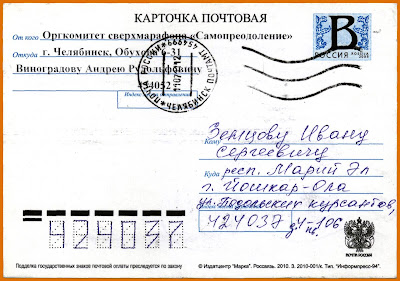 КАРТОЧКА ПОЧТОВАЯ
От кого Оргкомитет сверхмарафона «Самопреодоление»
Откуда г. Челябинск, Обухова 6-31
Виноградову Андрею Рудольфовичу
454052
В
РОССИЯ
ПОЧТА РОССИИ
ЧЕЛЯБИНСК ПОЧТАМТ 454999
Кому Земцову Ивану
Сергеевичу
Куда респ. Марий Эл
г. Йошкар-Ола
ул. Подольских курсантов,
424037 д.4 - 106
424037
ПОЧТА РОССИИ
Подделка государственных знаков почтовой оплаты преследуется по закону
© Издатцентр "Марка". Россвязь. 2010. З. 2010-001/с. Тип. "Информпресс-94".